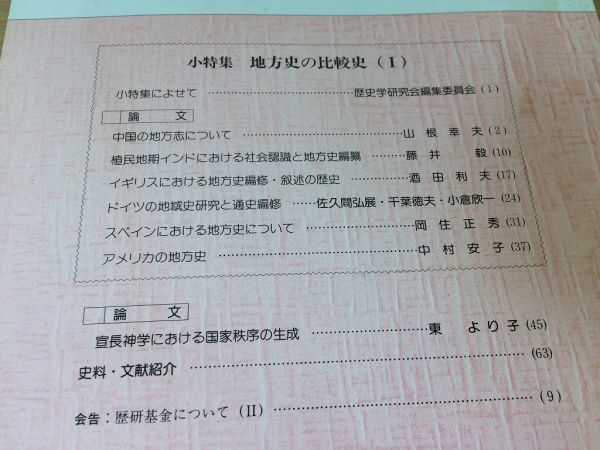 小特集 地方史の比較史(Ⅰ)
小特集によせて ……… 歴史学研究会編集委員会(1)
論 文
中国の地方志について ……… 山根幸夫(2)
植民地期インドにおける社会認識と地方史編纂 ……… 藤井 毅(10)
イギリスにおける地方史編修・叙述の歴史 ……… 酒田利夫(17)
ドイツの地域史研究と通史編修 ……… 佐久間弘展・千葉徳夫・小倉欣一(24)
スペインにおける地方史について ……… 岡住正秀(31)
アメリカの地方史 ……… 中村安子(37)
論 文
宣長神学における国家秩序の生成 ……… 東 より子(45)
史料・文献紹介 ……… (63)
会告:歴研基金について(II) ……… (9)